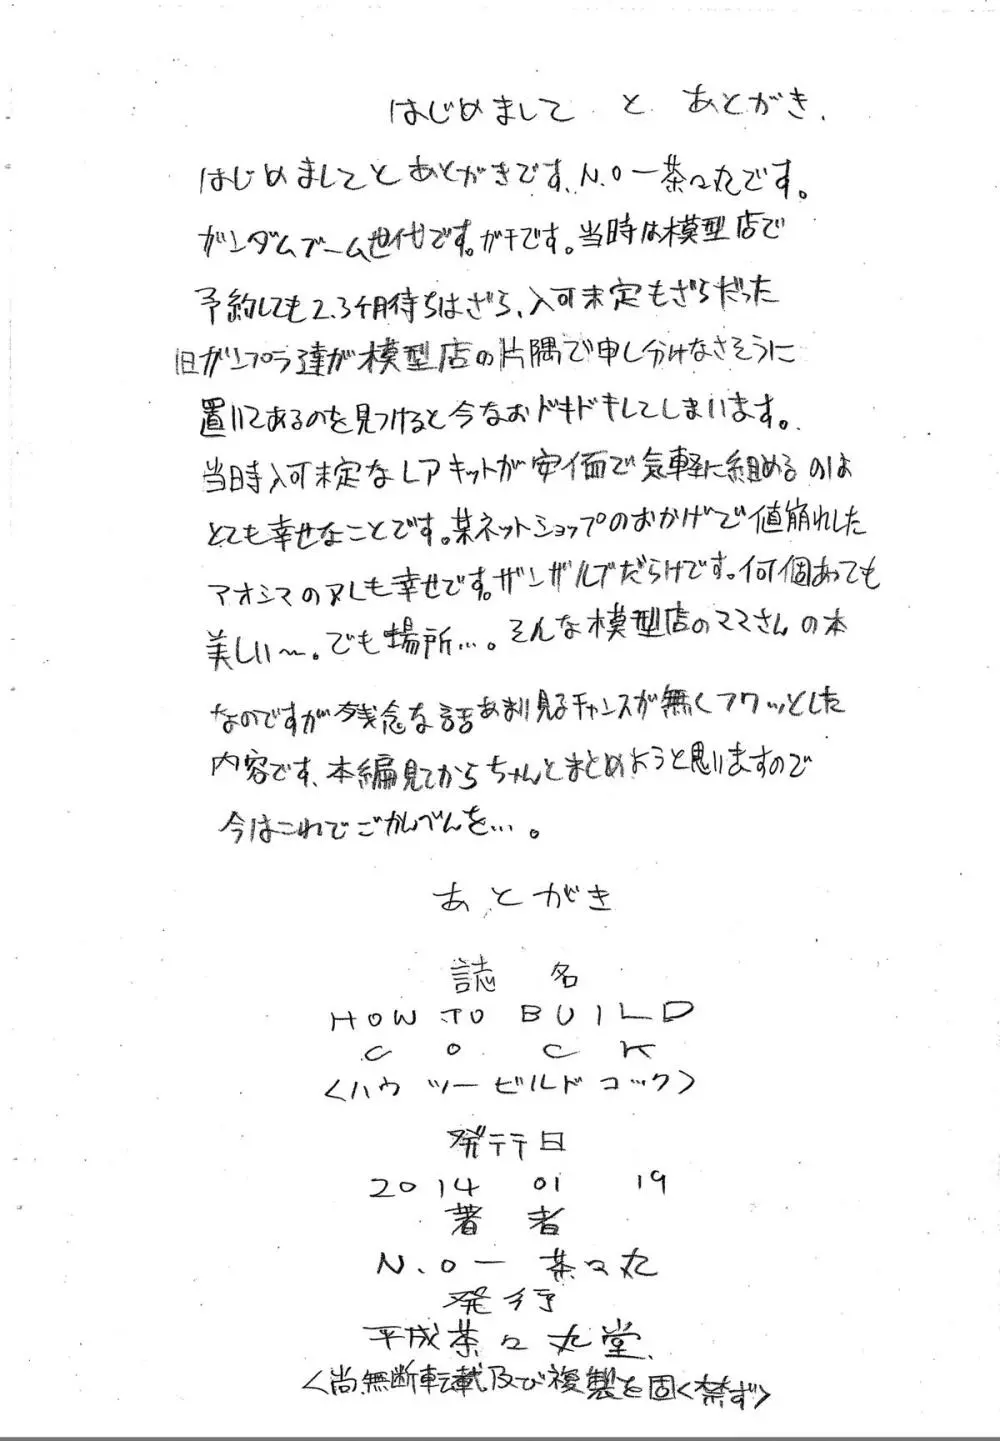 はじめまして と あとがき.
はじめましてとあとがきです、N.O-茶々丸です。
ガンダムブーム世代です。ガチです。当時は模型店で
予約しても2,3ヶ月待ちはざら、入可未定もざらだった
旧ガンプラ達が模型店の片隅で申し分けなさそうに
置いてあるのを見つけると今なおドキドキしてしまいます。
当時入可未定なレアキットが安価で気軽に組めるのは
とても幸せなことです。某ネットショップのおかげで値崩れした
アオシマのヌレも幸せです。ザンザルブだらけです。何個あっても
美しい〜。でも場所…。そんな模型店のママさんの本
なのですが残念な話あまり見るチャンスが無くフワッとした
内容です、本編見てからちゃんとまとめようと思いますので
今はこれでごかんべんを…。
あとがき
誌 名
HOW TO BUILD
C O C K
<ハウ ツー ビルド コック>
発行日
2014 01 19
著 者
N.O- 茶々丸
発 行
平成茶々丸堂.
<尚、無断転載及び複製を固く禁ず>